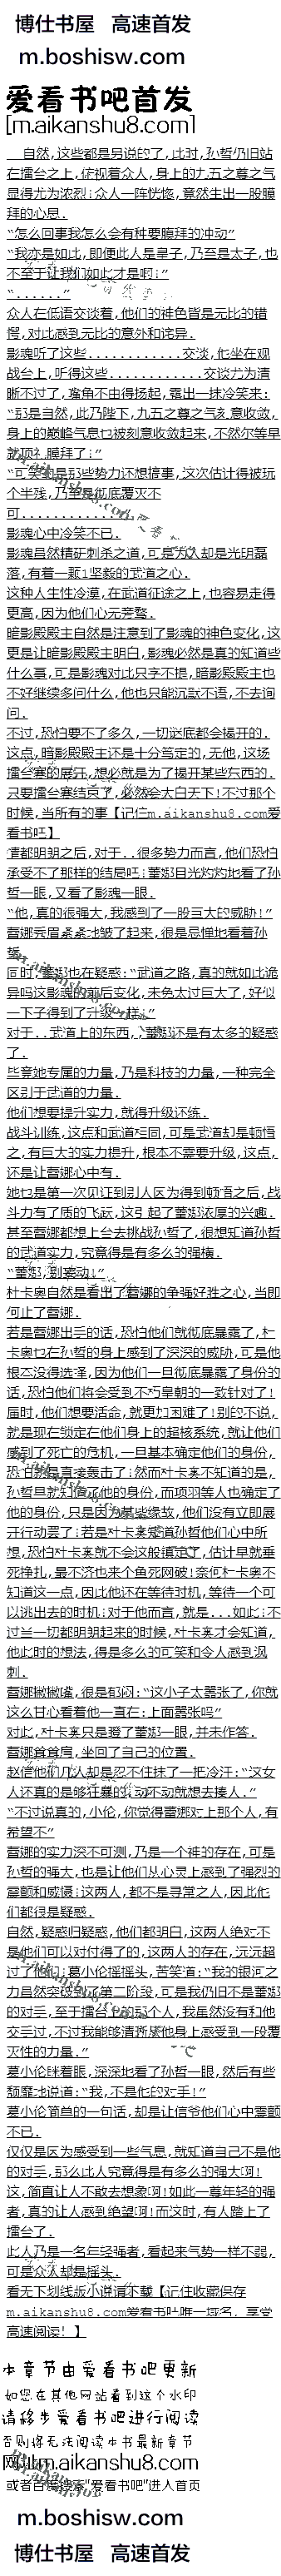 博仕书屋 高速首发
m.boshisw.com
爱看书吧首发
[m.aikanshu8.com]
自然,这些都是另说的了,此时,孙哲仍旧站
在擂台之上,俯视着众人,身上的九五之尊之气
显得尤为浓烈!众人一阵恍惚,竟然生出一股膜
拜的心思.
“怎么回事我怎么会有种要膜拜的冲动”
“我亦是如此,即便此人是皇子,乃至是太子,也
不至于让我们如此才是啊!”
“......”
众人在低语交谈着,他们的神色皆是无比的错
愕,对此感到无比的意外和诧异.
影魂听了这些............交谈,他坐在观
战台上,听得这些............交谈尤为清
晰不过了,嘴角不由得扬起,露出一抹冷笑来:
“那是自然,此乃陛下,九五之尊之气刻意收敛,
身上的巅峰气息也被刻意收敛起来,不然尔等早
就顶礼膜拜了!”
“可笑的是那些势力还想搞事,这次估计得被玩
个半残,乃至是彻底覆灭不
可............”
影魂心中冷笑不已.
影魂虽然精研刺杀之道,可是为人却是光明磊
落,有着一颗1坚毅的武道之心.
这种人生性冷漠,在武道征途之上,也容易走得
更高,因为他们心无旁骛.
暗影殿殿主自然是注意到了影魂的神色变化,这
更是让暗影殿殿主明白,影魂必然是真的知道些
什么事,可是影魂对此只字不提,暗影殿殿主也
不好继续多问什么,他也只能沉默不语,不去询
问.
不过,恐怕要不了多久,一切谜底都会揭开的.
这点,暗影殿殿主还是十分笃定的,无他,这场
擂台赛的展开,想必就是为了揭开某些东西的.
只要擂台赛结束了,必然会大白天下!不过那个
时候,当所有的事【记住m.aikanshu8.com爱
看书吧】
情都明朗之后,对于..很多势力而言,他们恐怕
承受不了那样的结局吧!蕾娜目光灼灼地看了孙
哲一眼,又看了影魂一眼.
“他,真的很强大,我感到了一股巨大的威胁!”
蕾娜秀眉紧紧地皱了起来,很是忌惮地看着孙
哲.
同时,蕾娜也在疑惑:“武道之路,真的就如此诡
异吗这影魂的前后变化,未免太过巨大了,好似
一下子得到了升级一样.”
对于..武道上的东西,蕾娜还是有太多的疑惑
了.
毕竟她专属的力量,乃是科技的力量,一种完全
区别于武道的力量.
他们想要提升实力,就得升级还练.
战斗训练,这点和武道相同,可是武道却是顿悟
之,有巨大的实力提升,根本不需要升级,这点,
还是让蕾娜心中有.
她也是第一次见证到别人因为得到顿悟之后,战
斗力有了质的飞跃,这引起了蕾娜浓厚的兴趣.
甚至蕾娜都想上台去挑战孙哲了,很想知道孙哲
的武道实力,究竟得是有多么的强横.
“蕾娜,别妄动!”
杜卡奥自然是看出了蕾娜的争强好胜之心,当即
何止了蕾娜.
若是蕾娜出手的话,恐怕他们就彻底暴露了,杜
卡奥也在孙哲的身上感到了深深的威胁,可是他
根本没得选择,因为他们一旦彻底暴露了身份的
话,恐怕他们将会受到不朽皇朝的一致针对了!
届时,他们想要活命,就更加困难了!别的不说,
就是现在锁定在他们身上的超核系统,就让他们
感到了死亡的危机,一旦基本确定他们的身份,
恐怕就是直接轰击了!然而杜卡奥不知道的是,
孙哲早就知道了他的身份,而项羽等人也确定了
他的身份,只是因为某些缘故,他们没有立即展
开行动罢了!若是杜卡奥知道孙哲他们心中所
想,恐怕杜卡奥就不会这般镇定了,估计早就垂
死挣扎,最不济也来个鱼死网破!奈何杜卡奥不
知道这一点,因此他还在等待时机,等待一个可
以逃出去的时机!对于他而言,就是...如此!不
过当一切都明朗起来的时候,杜卡奥才会知道,
他此时的想法,得是多么的可笑和令人感到讽
刺.
蕾娜撇撇嘴,很是郁闷:“这小子太嚣张了,你就
这么甘心看着他一直在:上面嚣张吗”
对此,杜卡奥只是瞪了蕾娜一眼,并未作答.
蕾娜耸耸肩,坐回了自己的位置.
赵信他们几人却是忍不住抹了一把冷汗:“这女
人还真的是够狂暴的,动不动就想去揍人.”
“不过说真的,小伦,你觉得蕾娜对上那个人,有
希望不”
蕾娜的实力深不可测,乃是一个神的存在,可是
孙哲的强大,也是让他们从心灵上感到了强烈的
震颤和威慑!这两人,都不是寻常之人,因此他
们都很是疑惑.
自然,疑惑归疑惑,他们都明白,这两人绝对不
是他们可以对付得了的,这两人的存在,远远超
过了他们!葛小伦摇摇头,苦笑道:“我的银河之
力虽然突破到了第二阶段,可是我仍旧不是蕾娜
的对手,至于擂台上的那个人,我虽然没有和他
交手过,不过我能够清晰从他身上感受到一段覆
灭性的力量.”
葛小伦眯着眼,深深地看了孙哲一眼,然后有些
颓靡地说道:“我,不是他的对手!”
葛小伦简单的一句话,却是让信爷他们心中震颤
不已.
仅仅是因为感受到一些气息,就知道自己不是他
的对手,那么此人究竟得是有多么的强大啊!
这,简直让人不敢去想象啊!如此一尊年轻的强
者,真的让人感到绝望啊!而这时,有人踏上了
擂台了.
此人乃是一名年轻强者,看起来气势一样不弱,
可是众人却是摇头.
看无下划线版小说请下载【记住收藏保存
m.aikanshu8.com爱看书吧唯一域名，享受
高速阅读！】
本章节由爱看书吧更新
如您在其他网站看到这个水印
请移步爱看书吧进行阅读
否则将无法阅读本书最新章节
网址m.aikanshu8.com
或者百度搜索"爱看书吧"进入首页
m.boshisw.com
博仕书屋 高速首发